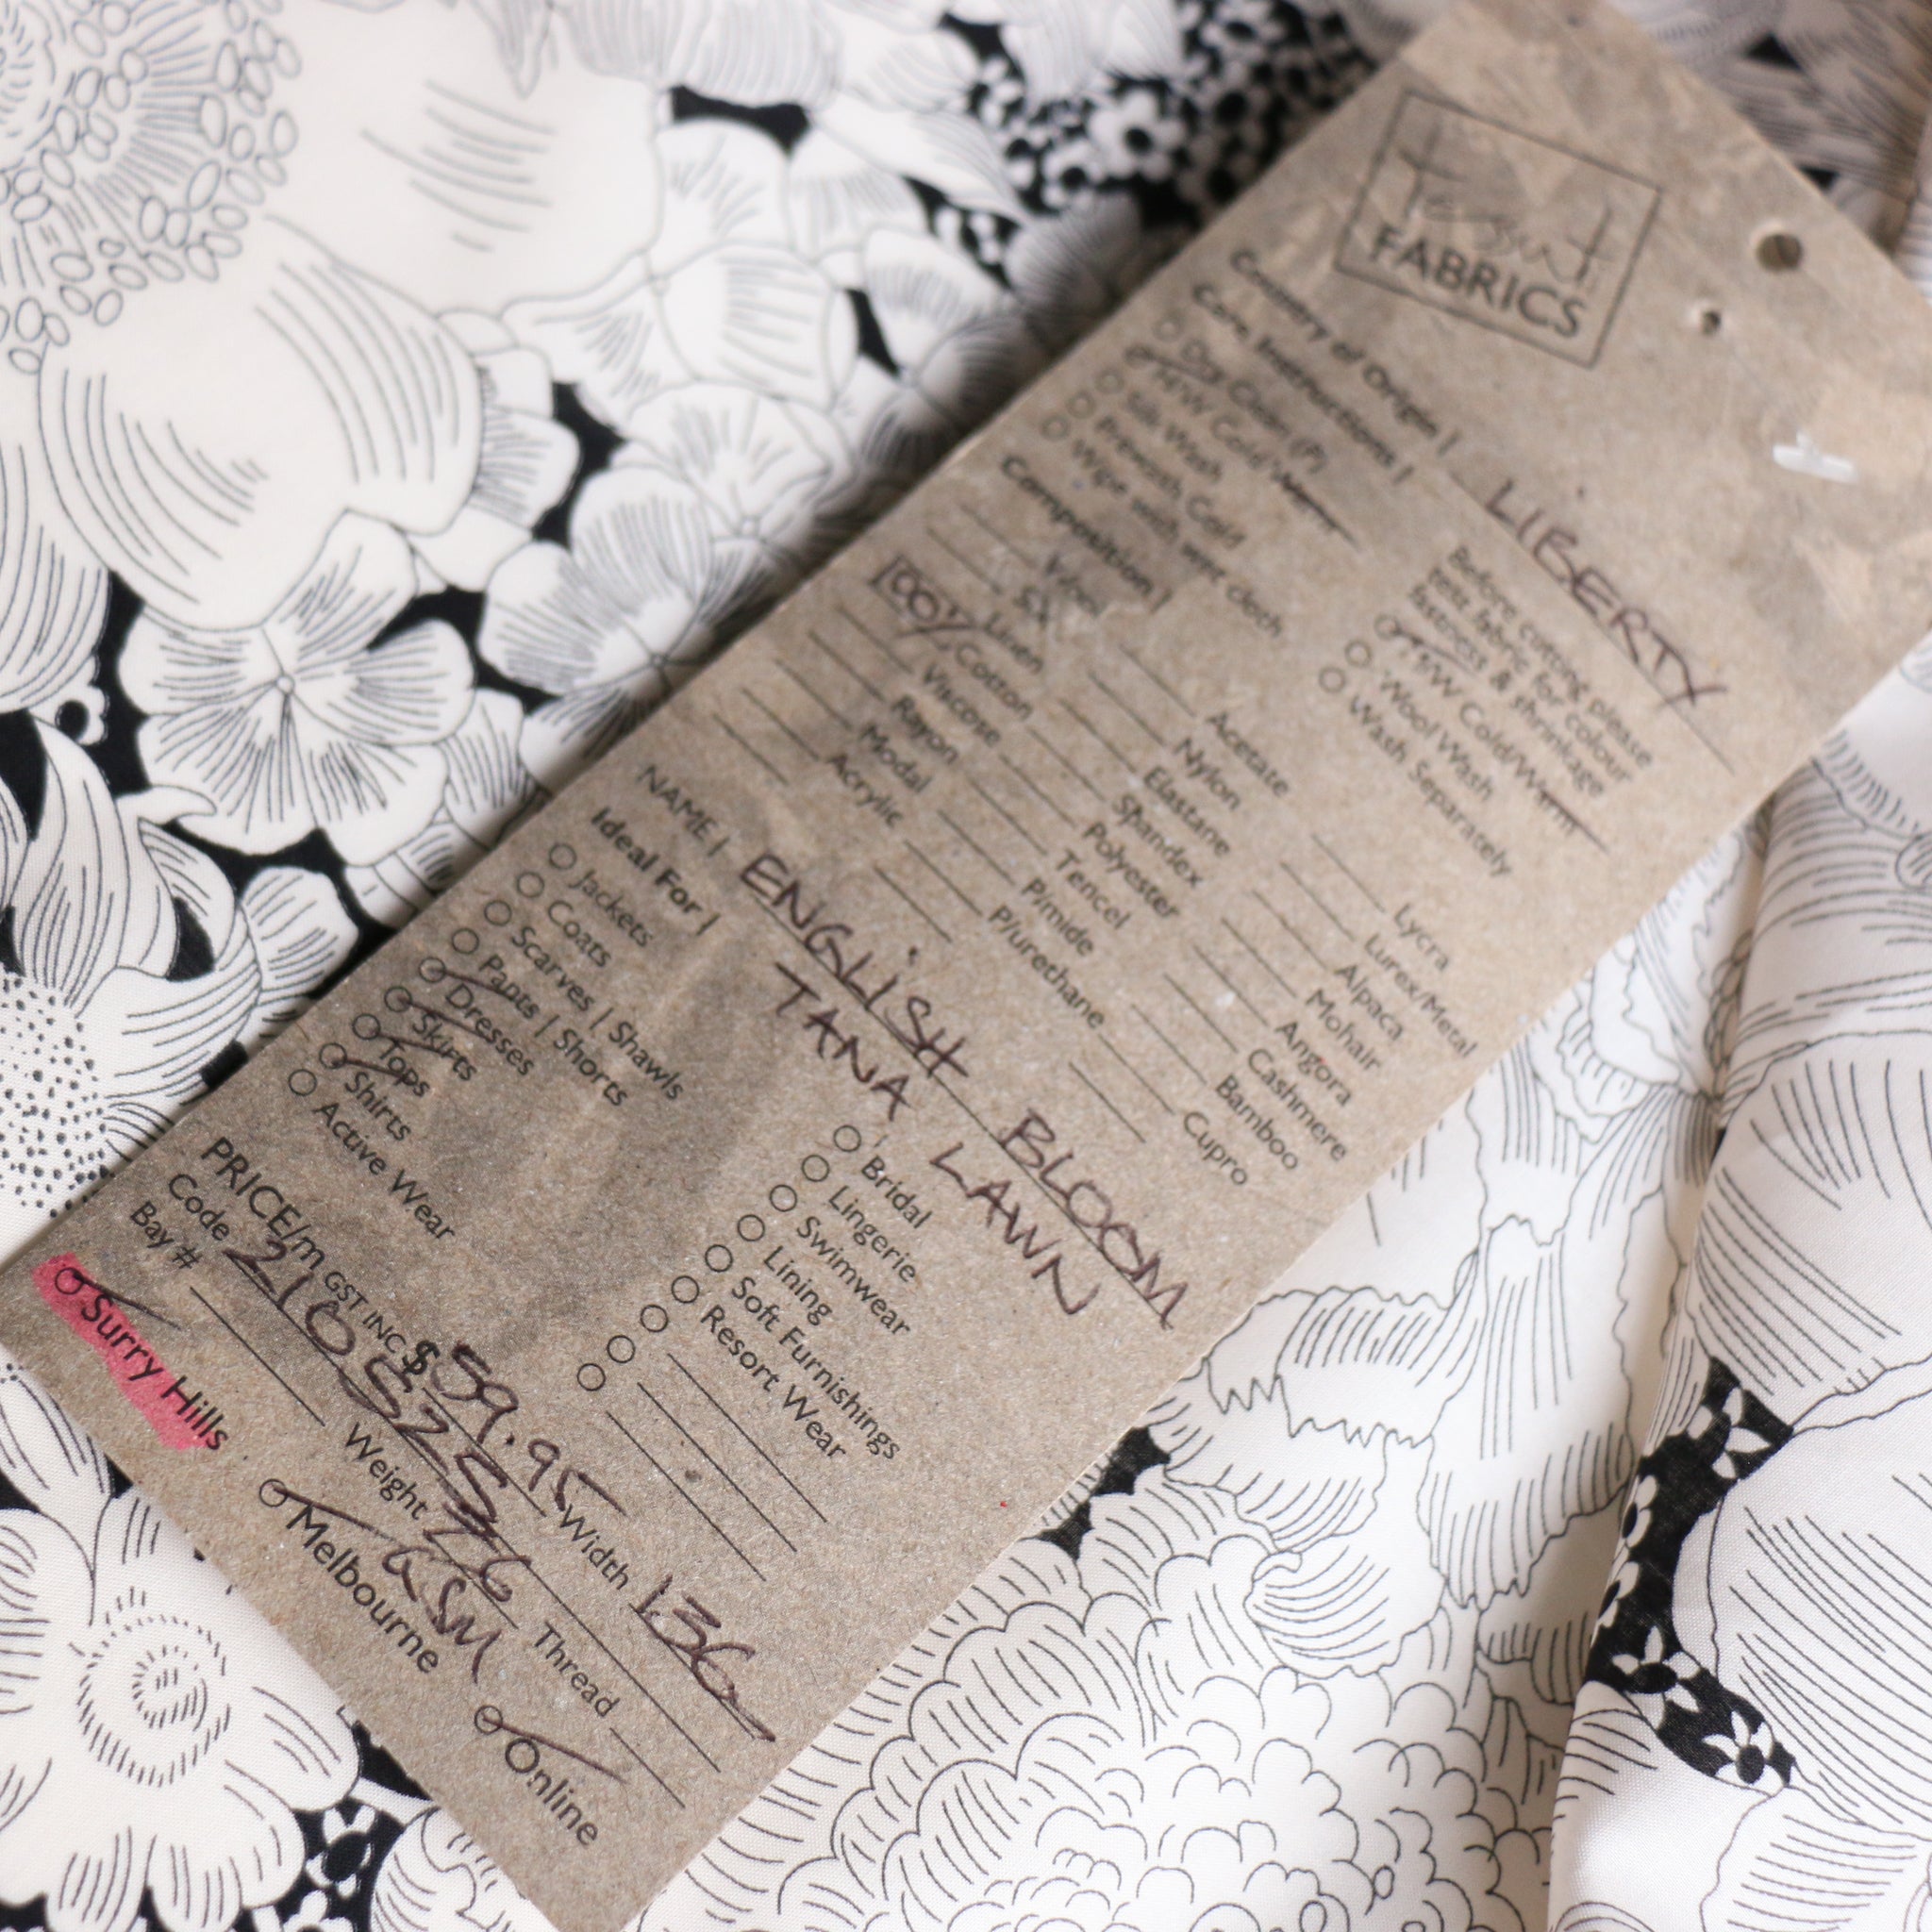 Tessuti
FABRICS
Country of Origin | LIBERTY
Care Instructions |
Dry Clean (P)
H/W Cold/Warm
Silk Wash
Prewash Cold
Wipe with wet cloth
Before cutting please
test fabric for colour
fastness & shrinkage
M/W Cold/Warm
Wool Wash
Wash Separately
Composition |
Wool
Silk
Linen
100% Cotton
Viscose
Rayon
Modal
Acrylic
Acetate
Nylon
Elastane
Spandex
Polyester
Tencel
P/mide
P/urethane
Lycra
Lurex/Metal
Alpaca
Mohair
Angora
Cashmere
Bamboo
Cupro
NAME | ENGLISH BLOOM
TANA LAWN
Ideal For |
Jackets
Coats
Scarves | Shawls
Pants | Shorts
Dresses
Skirts
Tops
Shirts
Active Wear
Bridal
Lingerie
Swimwear
Lining
Soft Furnishings
Resort Wear
PRICE/m GST INC $ 59.95
Code 210525 Width 136
Bay # Weight 76 GSM Thread
Surry Hills Melbourne Online